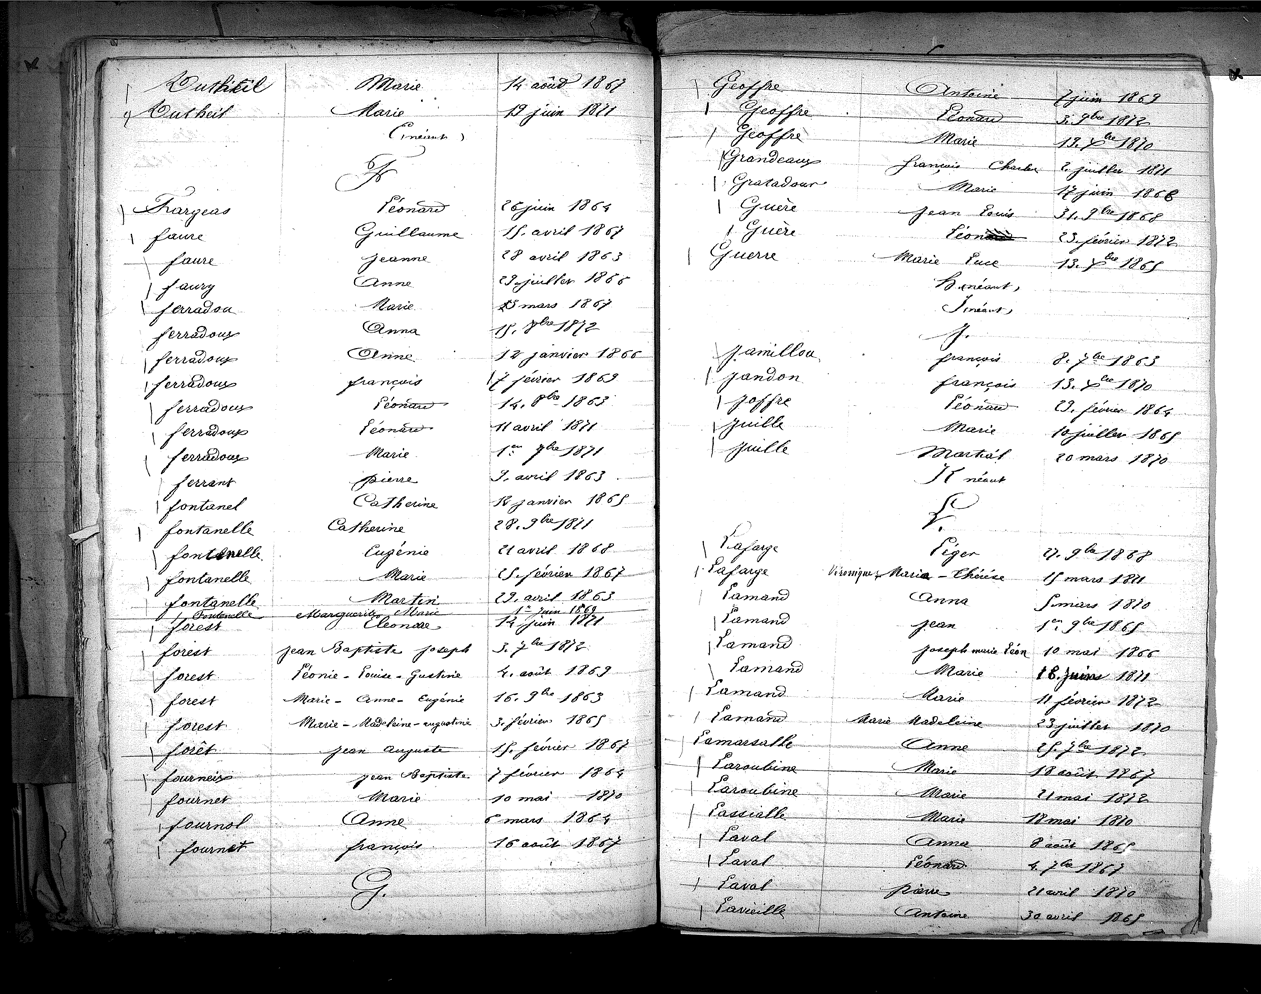 Dutheil Marie 14 août 1867
Dutheil Marie 19 juin 1871
E (néant)
F
Fargeas Léonard 26 juin 1864
faure Guillaume 15 avril 1867
faure jeanne 28 avril 1863
faury Anne 23 juillet 1866
ferradou Marie 25 mars 1867
ferradoux Anna 15 8bre 1872
ferradoux Anne 12 janvier 1866
ferradoux françois 7 février 1869
ferradoux Léonard 14 8bre 1863
ferradoux Léonard 11 avril 1871
ferradoux Marie 1er 7bre 1871
ferrant pierre 3 avril 1863
fontanel Catherine 18 janvier 1865
fontanelle Catherine 28 9bre 1871
fontanelle Eugénie 21 avril 1868
fontanelle Marie 25 février 1867
fontanelle Martin 29 avril 1863
fontenelle Marguerite Marie 1er juin 1869
forest Eleonore 14 juin 1871
forest jean Baptiste joseph 3 7bre 1872
forest Léonie - Louise - Gustine 4 août 1869
forest Marie - Anne - Eugénie 16 9bre 1863
forest Marie - Madeleine - augustine 3 février 1865
forêt jean auguste 15 février 1867
fourneix jean Baptiste 7 février 1864
fournet Marie 10 mai 1870
fournol Anne 6 mars 1864
fournet françois 16 août 1867
G.
Geoffre Antoine 7 juin 1869
Geoffre Léonard 3 9bre 1872
Geoffre Marie 13 Xbre 1870
Grandeaux françois Charles 2 juillet 1871
Gratadour Marie 17 juin 1866
Guère jean Louis 31 9bre 1868
Guère Léonard 23 février 1872
Guerre Marie Luce 13 Xbre 1865
H (néant)
I (néant)
J.
jamillou françois 8 7bre 1863
jandon françois 13 Xbre 1870
joffre Léonard 29 février 1864
juille Marie 10 juillet 1865
juille Martial 20 mars 1870
K néant
L.
Lafarge Léger 27 9bre 1868
Lafarge Véronique Maria - Thérèse 15 mars 1871
Lamand Anna 5 mars 1870
Lamand jean 1er 9bre 1865
Lamand joseph marie Léon 10 mai 1866
Lamand Marie 18 juin 1871
Lamand Marie 11 février 1872
Lamand Marie Madeleine 23 juillet 1870
Lamarsalle Anne 25 7bre 1872
Laroubine Marie 18 août 1867
Laroubine Marie 21 mai 1872
Lassialle Marie 18 mai 1870
Laval Anne 8 août 1865
Laval Léonard 4 7bre 1867
Laval pierre 21 avril 1870
Lavieille Antoine 30 avril 1865